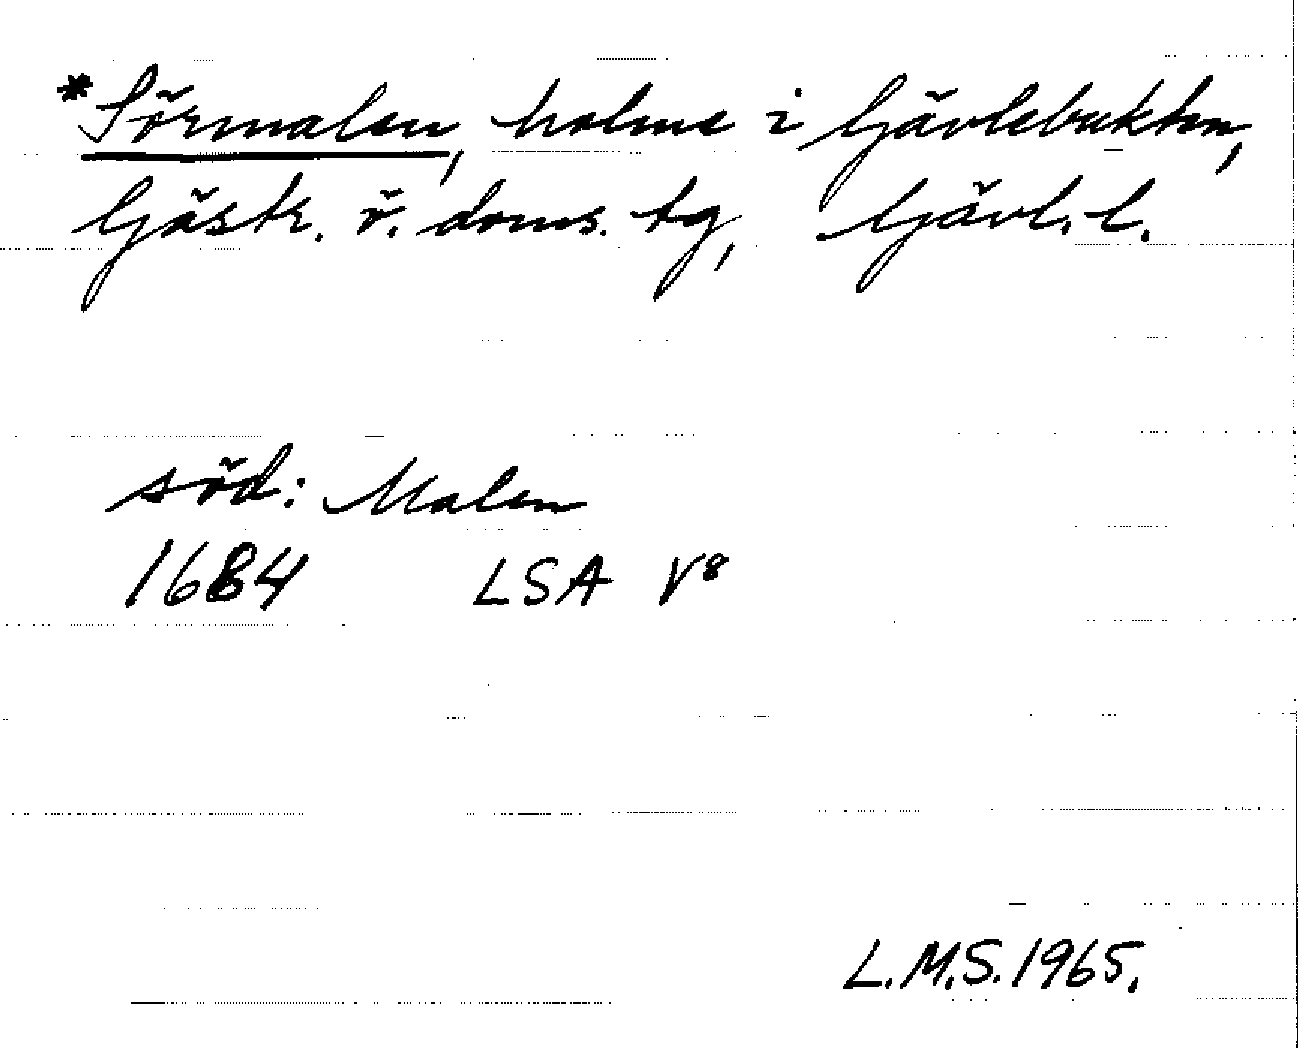 *Sörmalen, holme i Gävlebukten,
Gästr. ö. doms. tg, Gävl. l.
söd: Malen
1684 LSA V8
L.M.S. 1965.